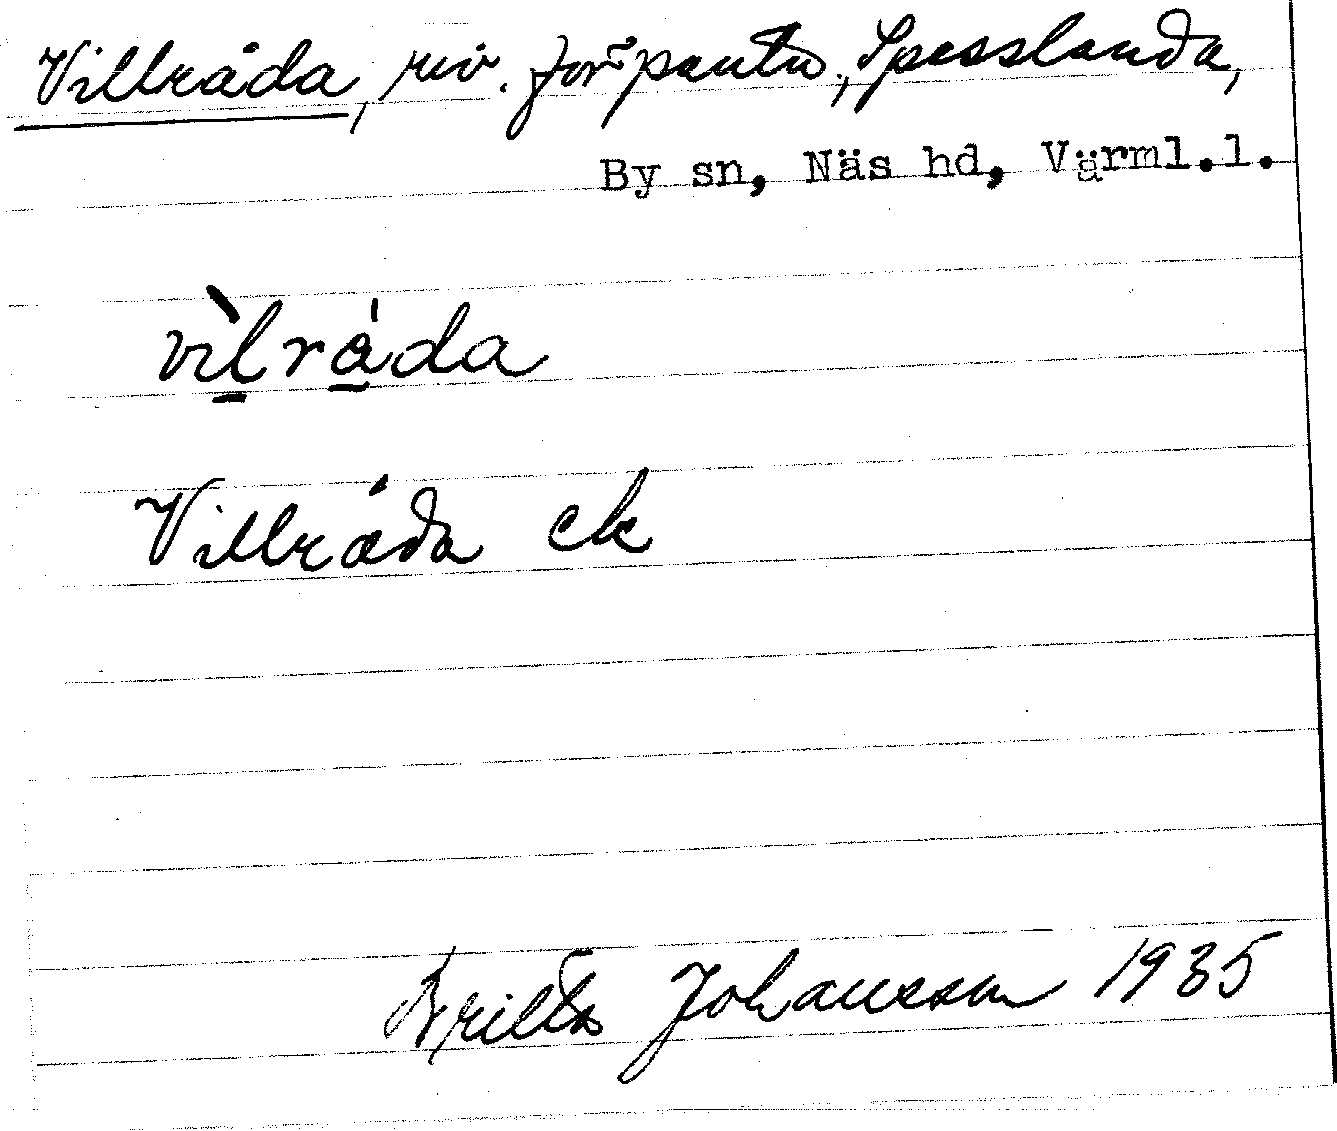 Villråda, riv. torpsntn., Spesslanda,
By sn, Näs hd, Värml.l.
vìlrǻda
Villråda ek
Britta Johansson 1935